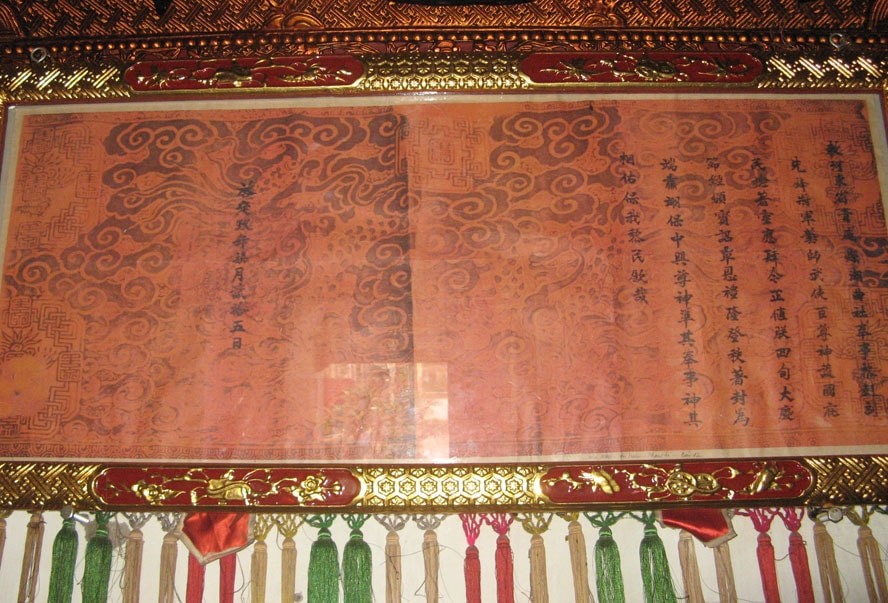 敕河東省青威縣社奉事
斗將軍師武俠尊神護國庇
民稔著靈應肆今正值朕四旬大慶
節經頒寶詔覃恩禮隆登秩著封爲
端肅翊保中興尊神準其奉事神其
相佑保我黎民欽哉
啟定玖年柒月貳拾五日